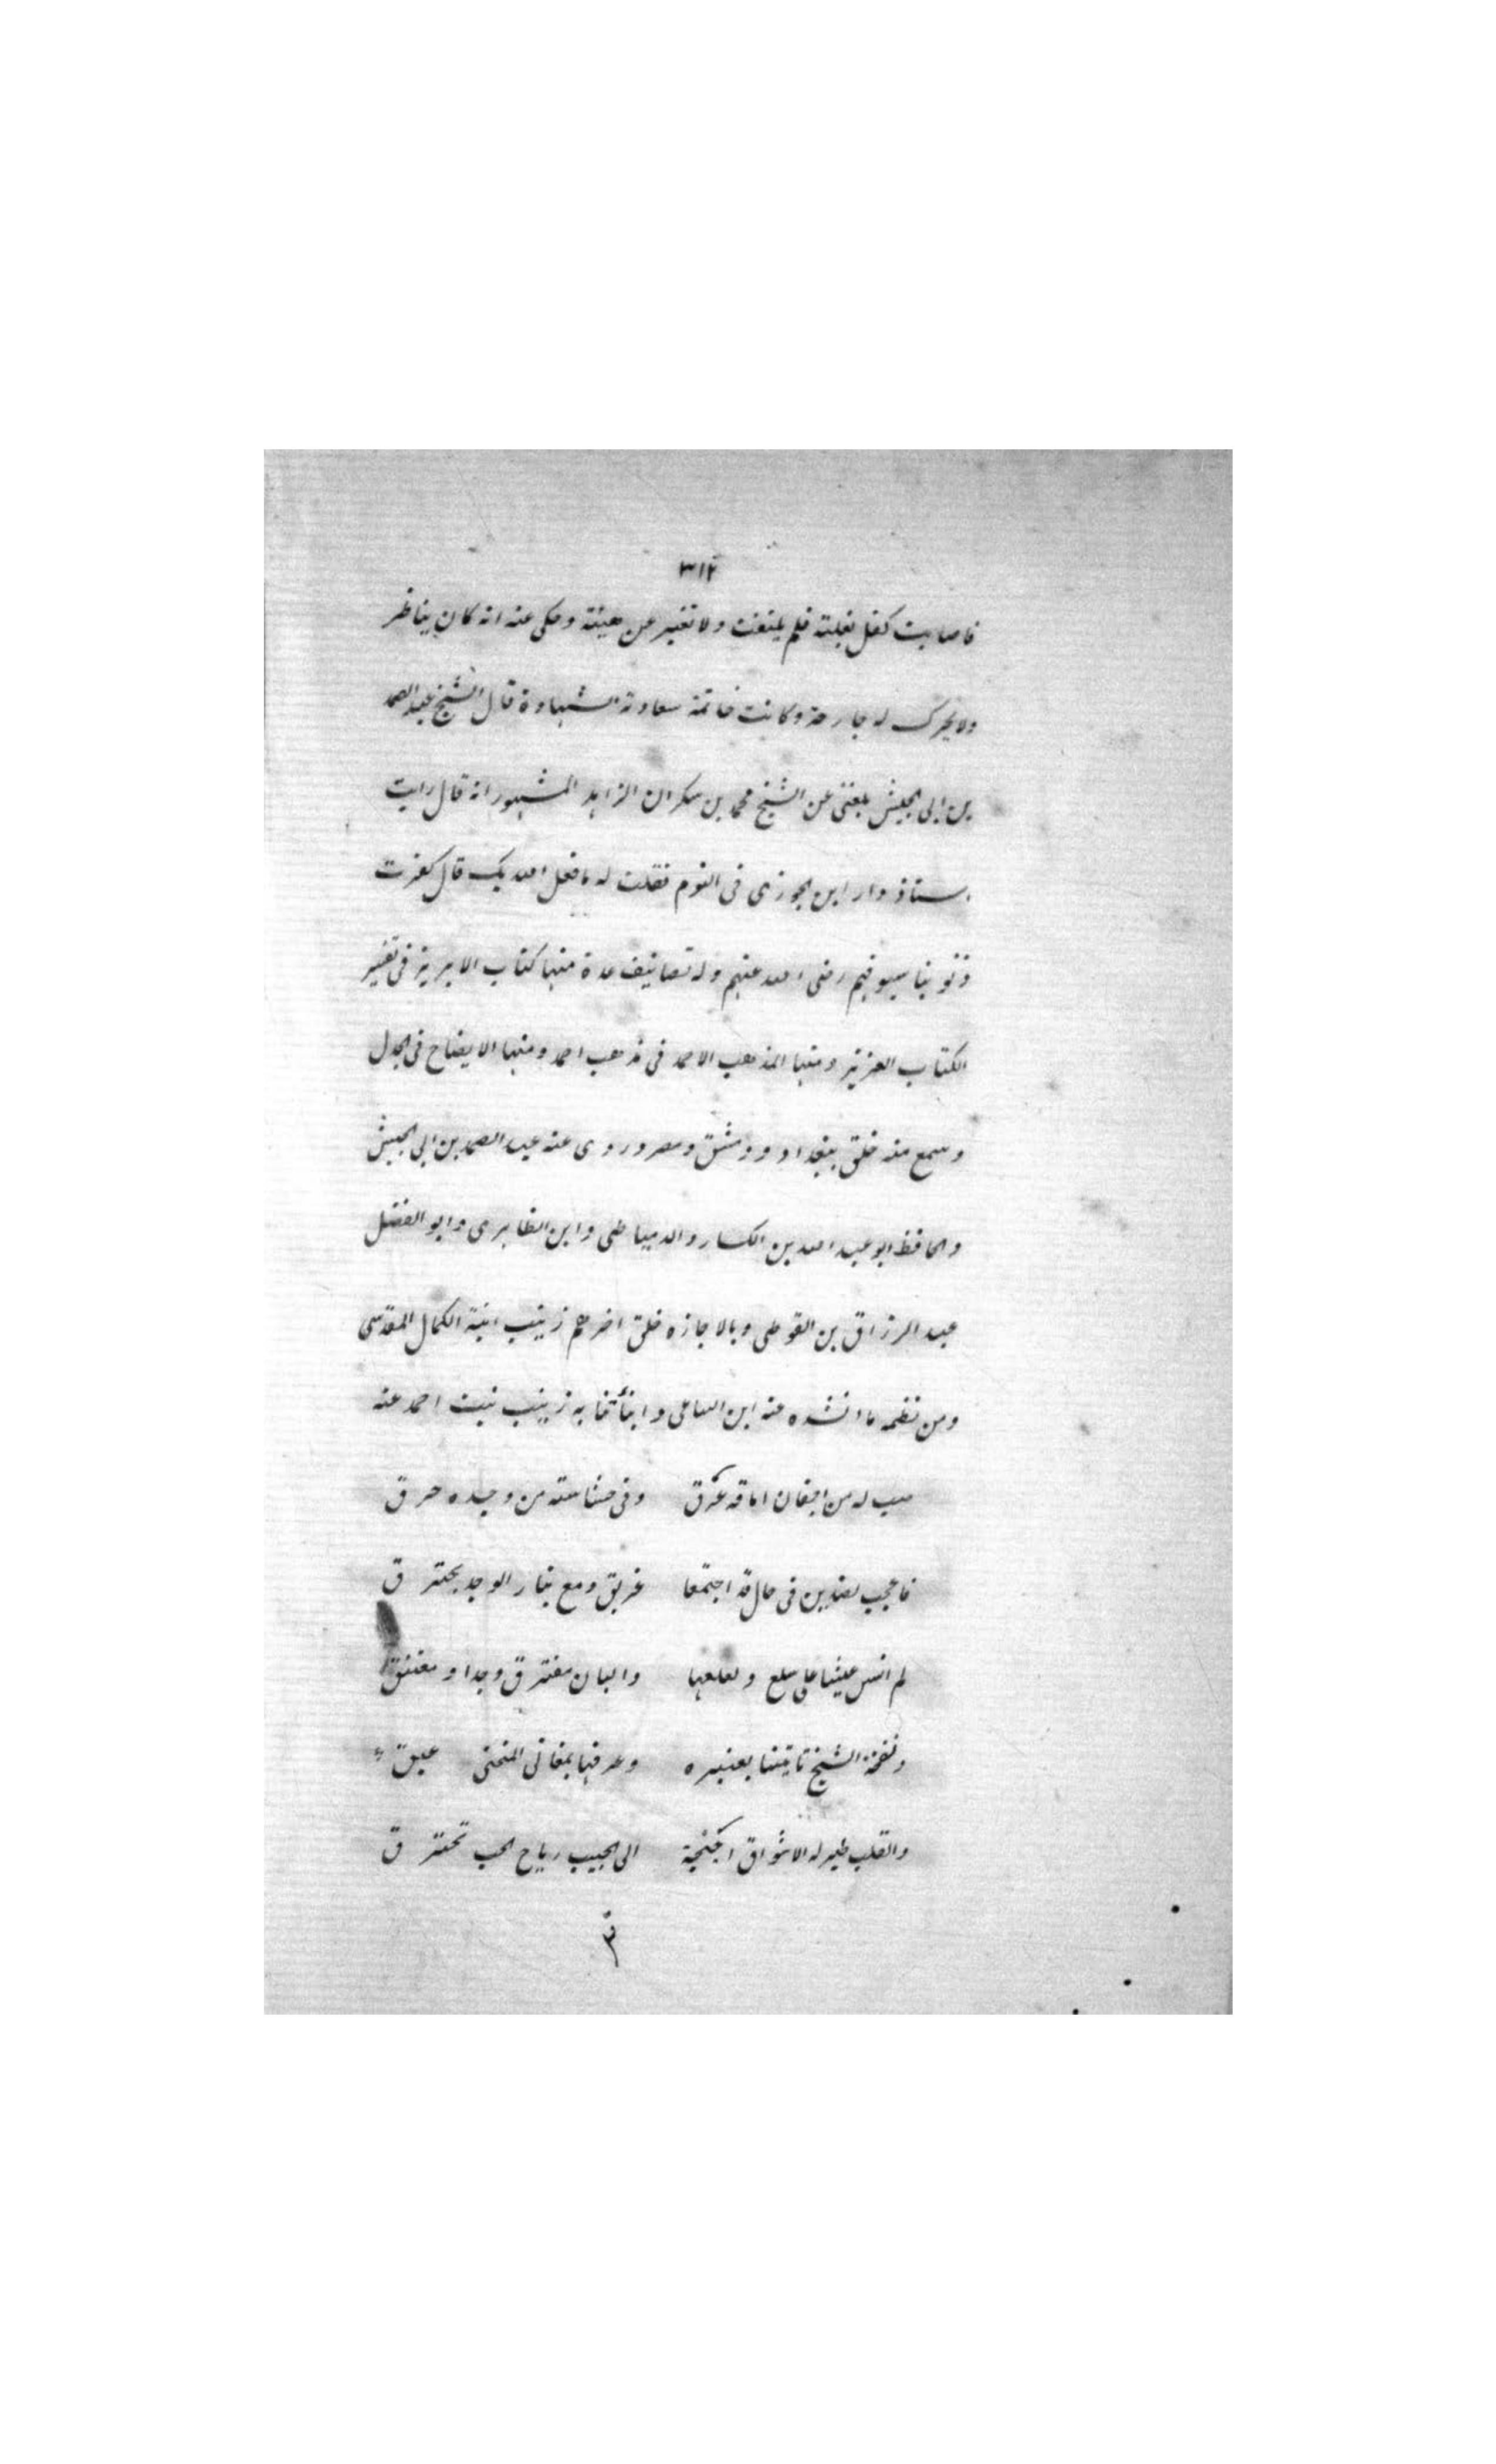 ٣١٢
فاصابت كفل بغلته فلم يلتفت ولا تغير عن هيئته وحكى عنه انه كان يناظر
ولا يحرك له جارحة وكانت خاتمة سعادته الشهادة قال الشيخ عبد الصمد
بن ابى الجيش بلغنى عن الشيخ محمد بن سكران الزاهد المشهور انه قال رايت
استاذ دار ابن الجوزى فى النوم فقلت له ما فعل الله بك قال كفرت
ذنوبنا سيوفهم رضى الله عنهم وله تصانيف عدة منها كتاب الابريز فى تفسير
الكتاب العزيز ومنها المذهب الاحمد فى مذهب احمد ومنها الايضاح فى الجدل
وسمع منه خلق ببغداد ودمشق ومصر وروى عنه عبد الصمد بن ابى الجيش
والحافظ ابو عبد الله بن الكسار والدمياطى وابن الظاهرى وابو الفضل
عبد الرزاق بن الفوطى وبالاجازه خلق اخرهم زينب ابنة الكمال المقدسى
ومن نظمه ما انشده عنه ابن الساعى وانبأتنا به زينب بنت احمد عنه
صب له من اجفان اماقه غرق وفى حشاشته من وجده حرق
فاعجب لضدين فى حال قد اجتمعا غريق دمع بنار الوجد يحترق
لم انس عيشا على سلع ولعلعها والبان مفترق وجدا ومعتنق
ونفحة الشيخ تاتينا بعنبره وعرفها بمغانى المنحنى عبق
والقلب طير له الاشواق اجنحة الى الحبيب رياح الحب تخترق